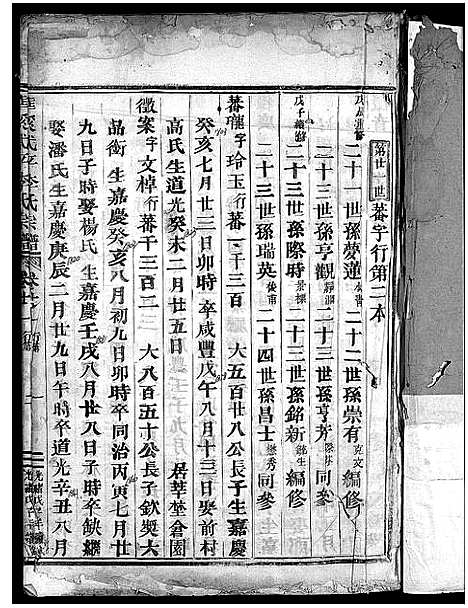 第廿一世 蕃字行第二本
二十一世孫夢蓮 二十二世孫崇有 克文 編修
二十三世孫亨觀 二十三世孫亨芳 同參
二十三世孫際時 二十三世孫銘新 編修
二十三世孫瑞英 二十四世孫昌士 懋秀 同參
蕃瓏 字玲玉 行蕃一千三百 大五百廿八公長子生嘉慶
癸亥七月廿三日卯時卒咸豐戊午八月十三日娶前村
高氏生道光癸未二月廿五日 居莘堂倉園
徵案 字文棹 行蕃千三百 大八百五十公長子欽奬六
品銜生嘉慶癸亥八月初九日卯時卒同治丙寅七月廿
九日子時娶楊氏生嘉慶壬戌八月廿八日子時卒缺繼
娶潘氏生嘉慶庚辰二月廿九日午時卒道光辛丑八月